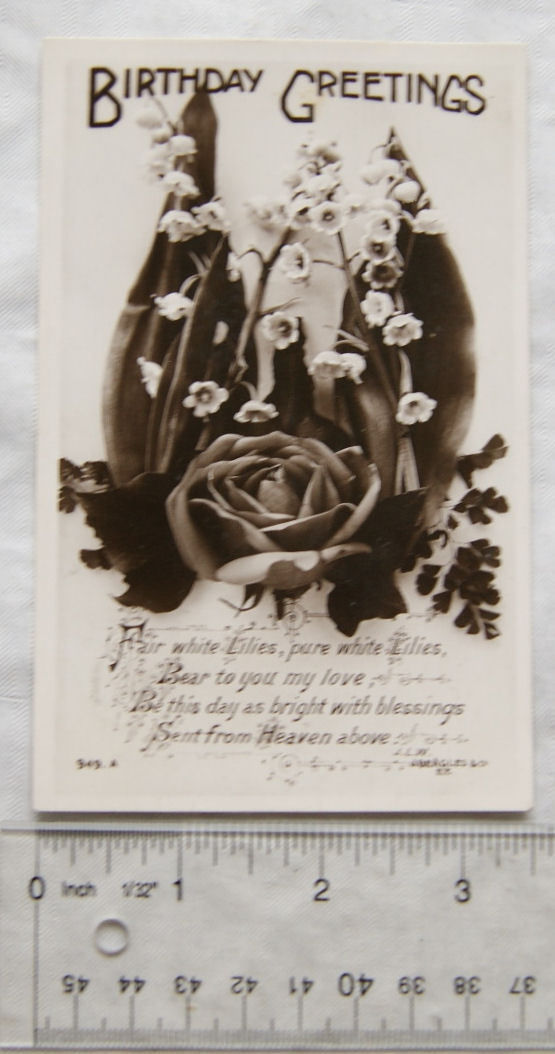 BIRTHDAY GREETINGS
Fair white Lilies, pure white Lilies,
Bear to you my love,
Be this day as bright with blessings
Sent from Heaven above.
949. A
0 Inch 1/32" 1 2 3
45 44 43 42 41 40 39 38 37